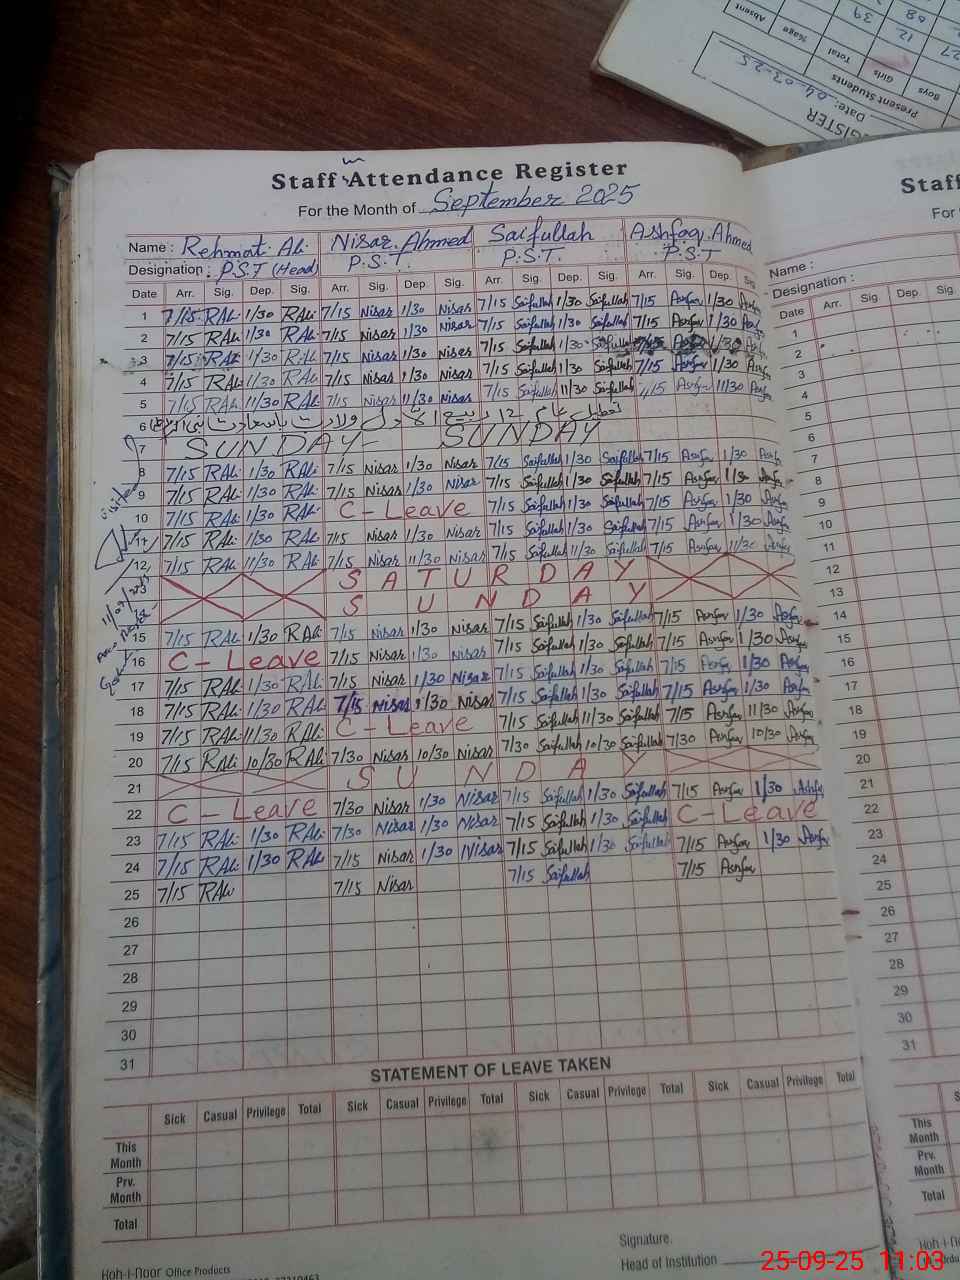 Staff Attendance Register
For the Month of September 2025
Name : Rehmat Ali Nisar Ahmed Saifullah Ashfaq Ahmed
Designation : P.S.T (Head) P.S.T. P.S.T. P.S.T
Date Arr. Sig. Dep. Sig. Arr. Sig. Dep. Sig. Arr. Sig. Dep. Sig. Arr. Sig. Dep. Sig.
1 7/15 RAli 1/30 RAli 7/15 Nisar 1/30 Nisar 7/15 Saifullah 1/30 Saifullah 7/15 Ashfaq 1/30 Ashfaq
2 7/15 RAli 1/30 RAli 7/15 Nisar 1/30 Nisar 7/15 Saifullah 1/30 Saifullah 7/15 Ashfaq 1/30 Ashfaq
3 7/15 RAli 1/30 RAli 7/15 Nisar 1/30 Nisar 7/15 Saifullah 1/30 Saifullah 7/15 1/30 Ashfaq
4 7/15 RAli 11/30 RAli 7/15 Nisar 1/30 Nisar 7/15 Saifullah 1/30 Saifullah 7/15 Ashfaq 1/30 Ashfaq
5 7/15 RAli 11/30 RAli 7/15 Nisar 11/30 Nisar 7/15 Saifullah 11/30 Saifullah 7/15 Ashfaq 11/30 Ashfaq
6 تعطیل عام 12 ربیع الاول ولادت باسعادت نبی
7 SUNDAY SUNDAY
8 7/15 RAli 1/30 RAli 7/15 Nisar 1/30 Nisar 7/15 Saifullah 1/30 Saifullah 7/15 Ashfaq 1/30 Ashfaq
9 7/15 RAli 1/30 RAli 7/15 Nisar 1/30 Nisar 7/15 Saifullah 1/30 Saifullah 7/15 Ashfaq 1/30 Ashfaq
10 7/15 RAli 1/30 RAli C - Leave 7/15 Saifullah 1/30 Saifullah 7/15 Ashfaq 1/30 Ashfaq
11 7/15 RAli 1/30 RAli 7/15 Nisar 1/30 Nisar 7/15 Saifullah 1/30 Saifullah 7/15 Ashfaq 1/30 Ashfaq
12 7/15 RAli 11/30 RAli 7/15 Nisar 11/30 Nisar 7/15 Saifullah 11/30 Saifullah 7/15 Ashfaq 11/30 Ashfaq
13 SATURDAY
SUNDAY
15 7/15 RAli 1/30 RAli 7/15 Nisar 1/30 Nisar 7/15 Saifullah 1/30 Saifullah 7/15 Ashfaq 1/30 Ashfaq
16 C - Leave 7/15 Nisar 1/30 Nisar 7/15 Saifullah 1/30 Saifullah 7/15 Ashfaq 1/30 Ashfaq
17 7/15 RAli 1/30 RAli 7/15 Nisar 1/30 Nisar 7/15 Saifullah 1/30 Saifullah 7/15 Ashfaq 1/30 Ashfaq
18 7/15 RAli 1/30 RAli 7/15 Nisar 1/30 Nisar 7/15 Saifullah 1/30 Saifullah 7/15 Ashfaq 1/30 Ashfaq
19 7/15 RAli 11/30 RAli C - Leave 7/15 Saifullah 11/30 Saifullah 7/15 Ashfaq 11/30 Ashfaq
20 7/15 RAli 10/30 RAli 7/30 Nisar 10/30 Nisar 7/30 Saifullah 10/30 Saifullah 7/30 Ashfaq 10/30 Ashfaq
21 SUNDAY
22 C - Leave 7/30 Nisar 1/30 Nisar 7/15 Saifullah 1/30 Saifullah 7/15 Ashfaq 1/30 Ashfaq
23 7/15 RAli 1/30 RAli 7/30 Nisar 1/30 Nisar 7/15 Saifullah 1/30 Saifullah C - Leave
24 7/15 RAli 1/30 RAli 7/15 Nisar 1/30 Nisar 7/15 Saifullah 1/30 Saifullah 7/15 Ashfaq 1/30 Ashfaq
25 7/15 RAli 7/15 Nisar 7/15 Saifullah 7/15 Ashfaq
26
27
28
29
30
31
STATEMENT OF LEAVE TAKEN
Sick Casual Privilege Total Sick Casual Privilege Total Sick Casual Privilege Total Sick Casual Privilege Total
This Month
Prv. Month
Total
Signature.
Head of Institution
Koh-I-Noor Office Products
Visited
Present Students
REGISTER
Date: 04-03-25
Boys Girls Total %age Absent
27 12 39
68
Staff
For
Name :
Designation :
Date Arr. Sig. Dep. Sig.
1
2
3
4
5
6
7
8
9
10
11
12
13
14
15
16
17
18
19
20
21
22
23
24
25
26
27
28
29
30
31
Sick
This Month
Prv. Month
Total
25-09-25 11:03